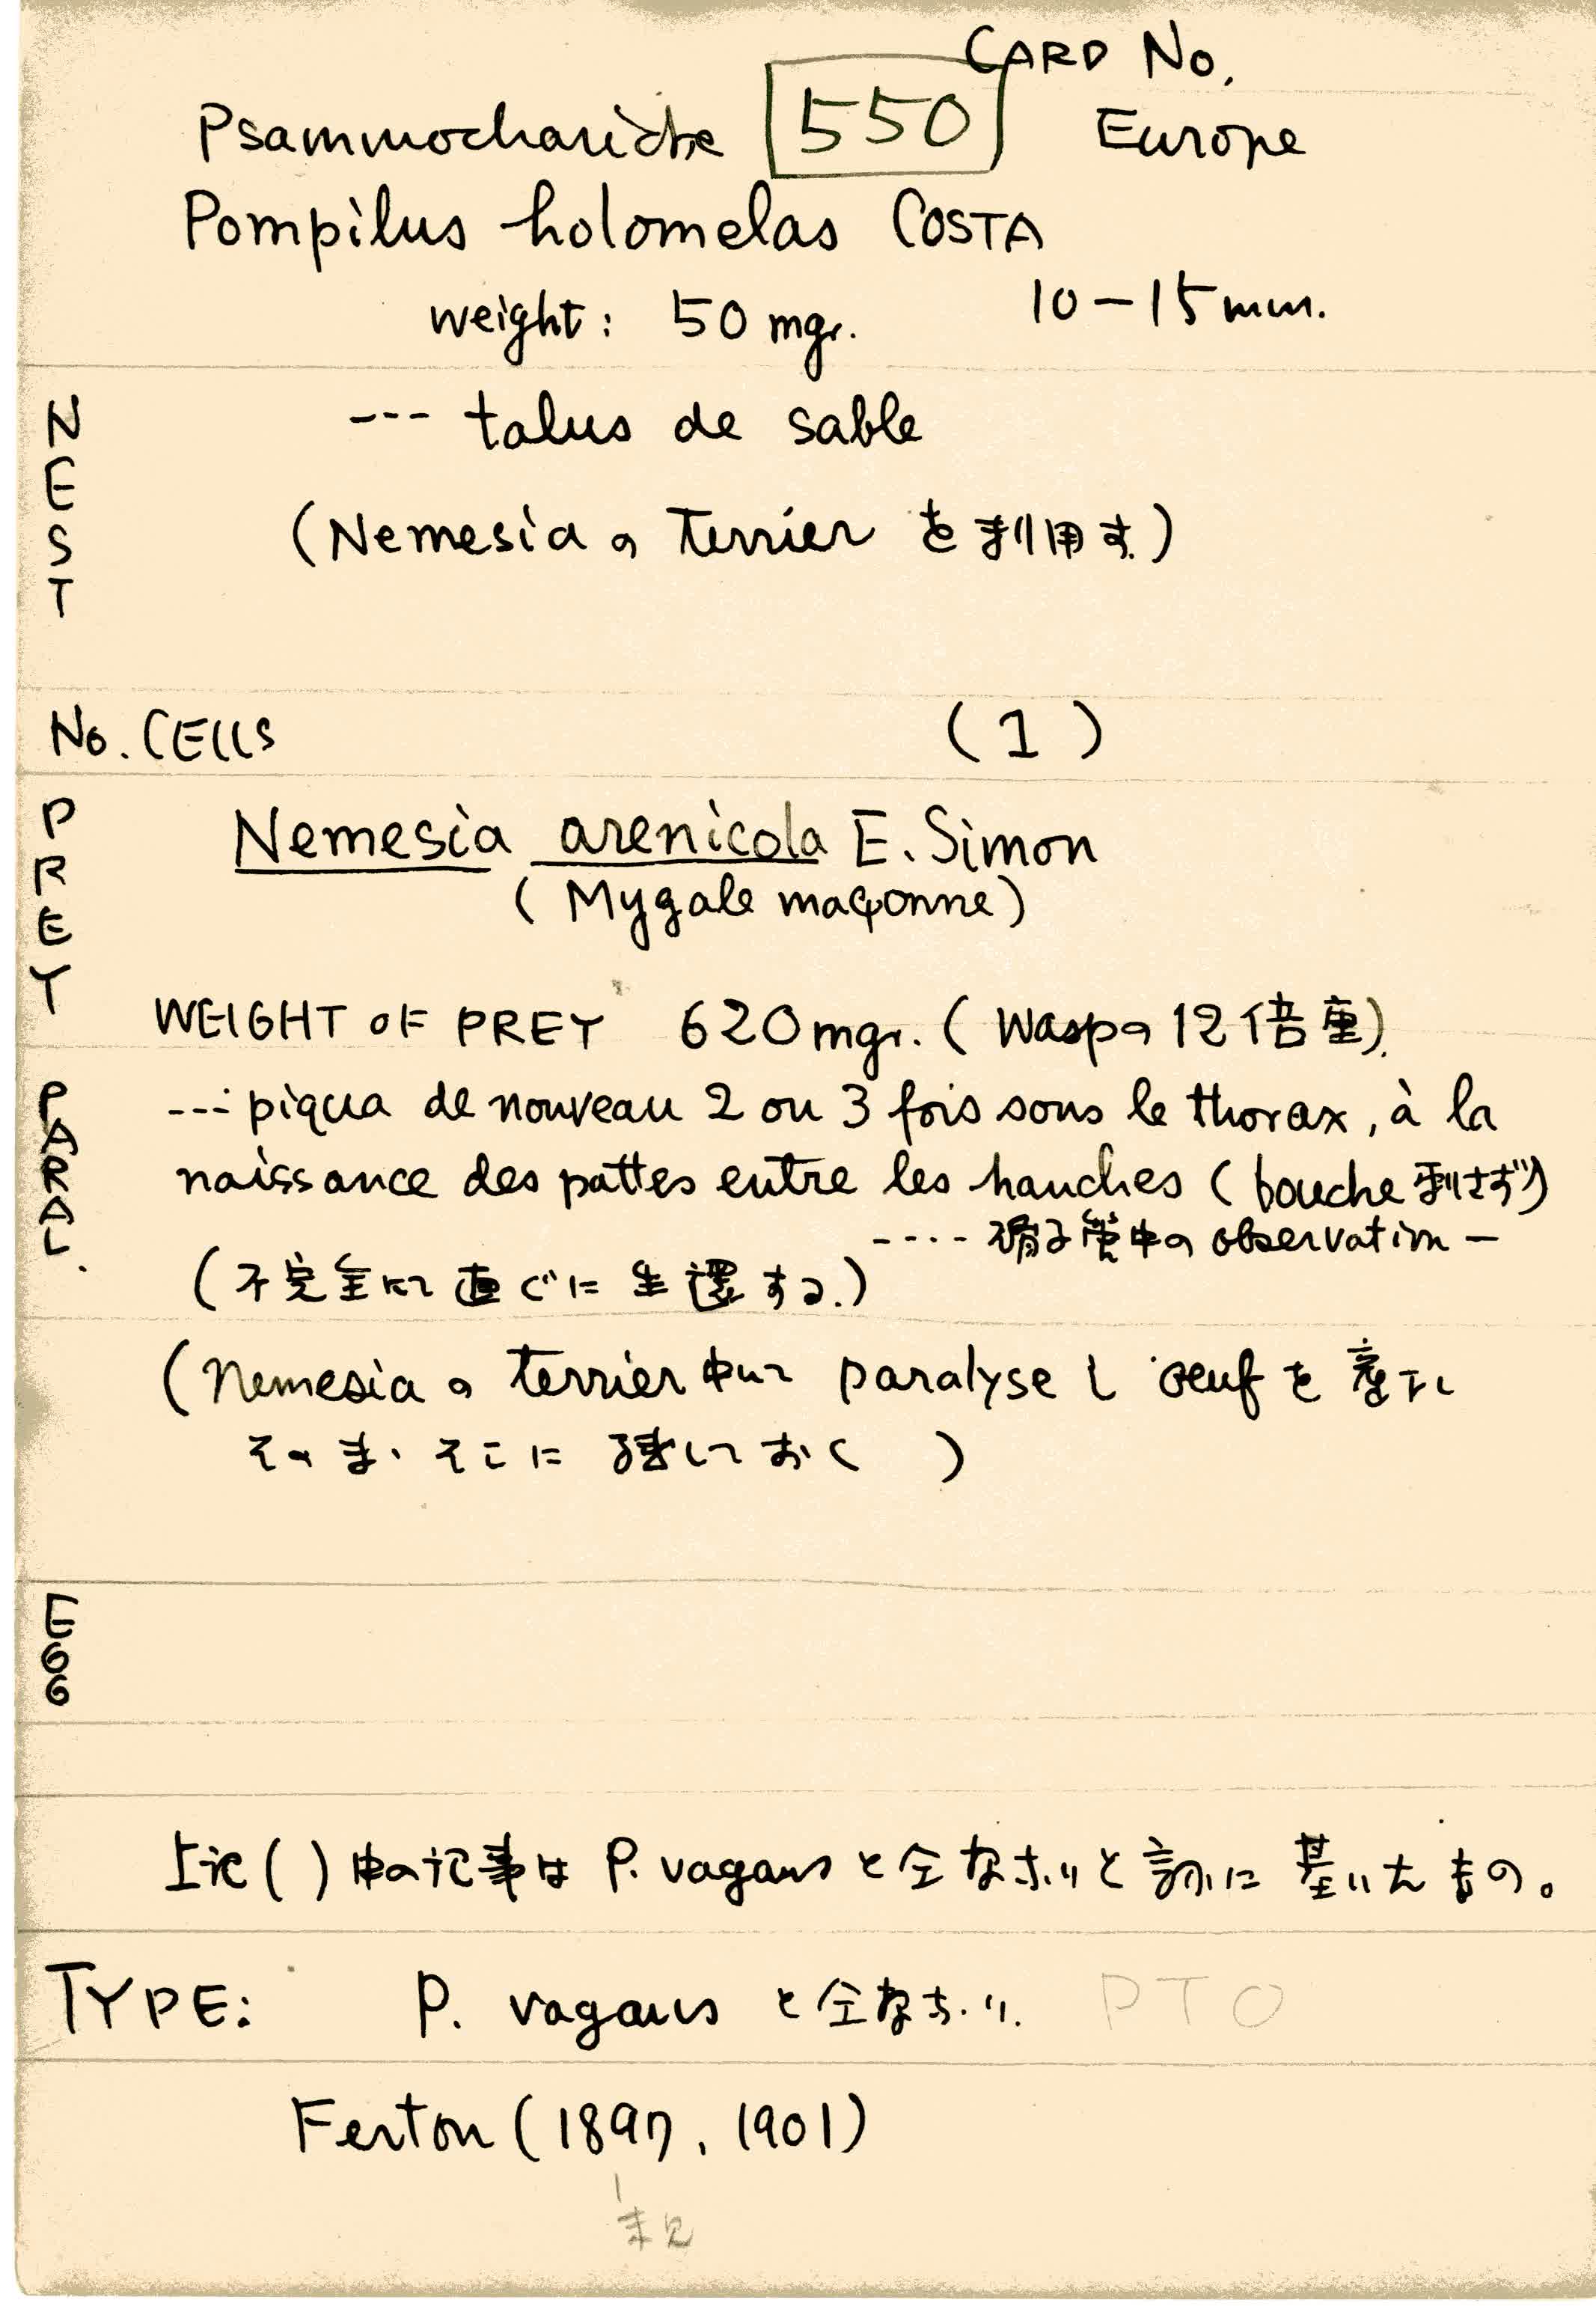 CARD No.
Psammocharidae 550 Europe
Pompilus holomelas COSTA
weight: 50 mgr. 10-15 mm.
NEST
--- talus de sable
(Nemesia の Terrier を利用す)
No. CELLS (1)
PREY
Nemesia arenicola E. Simon
(Mygale maçonne)
WEIGHT OF PREY 620 mgr. (Waspの12倍重).
PARAL.
--- piqua de nouveau 2 ou 3 fois sous le thorax, à la
naissance des pattes entre les hanches (bouche 刺さず)
---- 硝子管中の observation —
(不完全にて直ぐに生還する.)
(Nemesia の terrier 中にて paralyse し oeuf を産下し
そのまゝ そこに 残しておく )
EGG
上記( )中の記事は P. vagans と全なじいと訳に基いたもの。
TYPE: P. vagans と全なじい. PTO
Ferton (1897, 1901)
未見